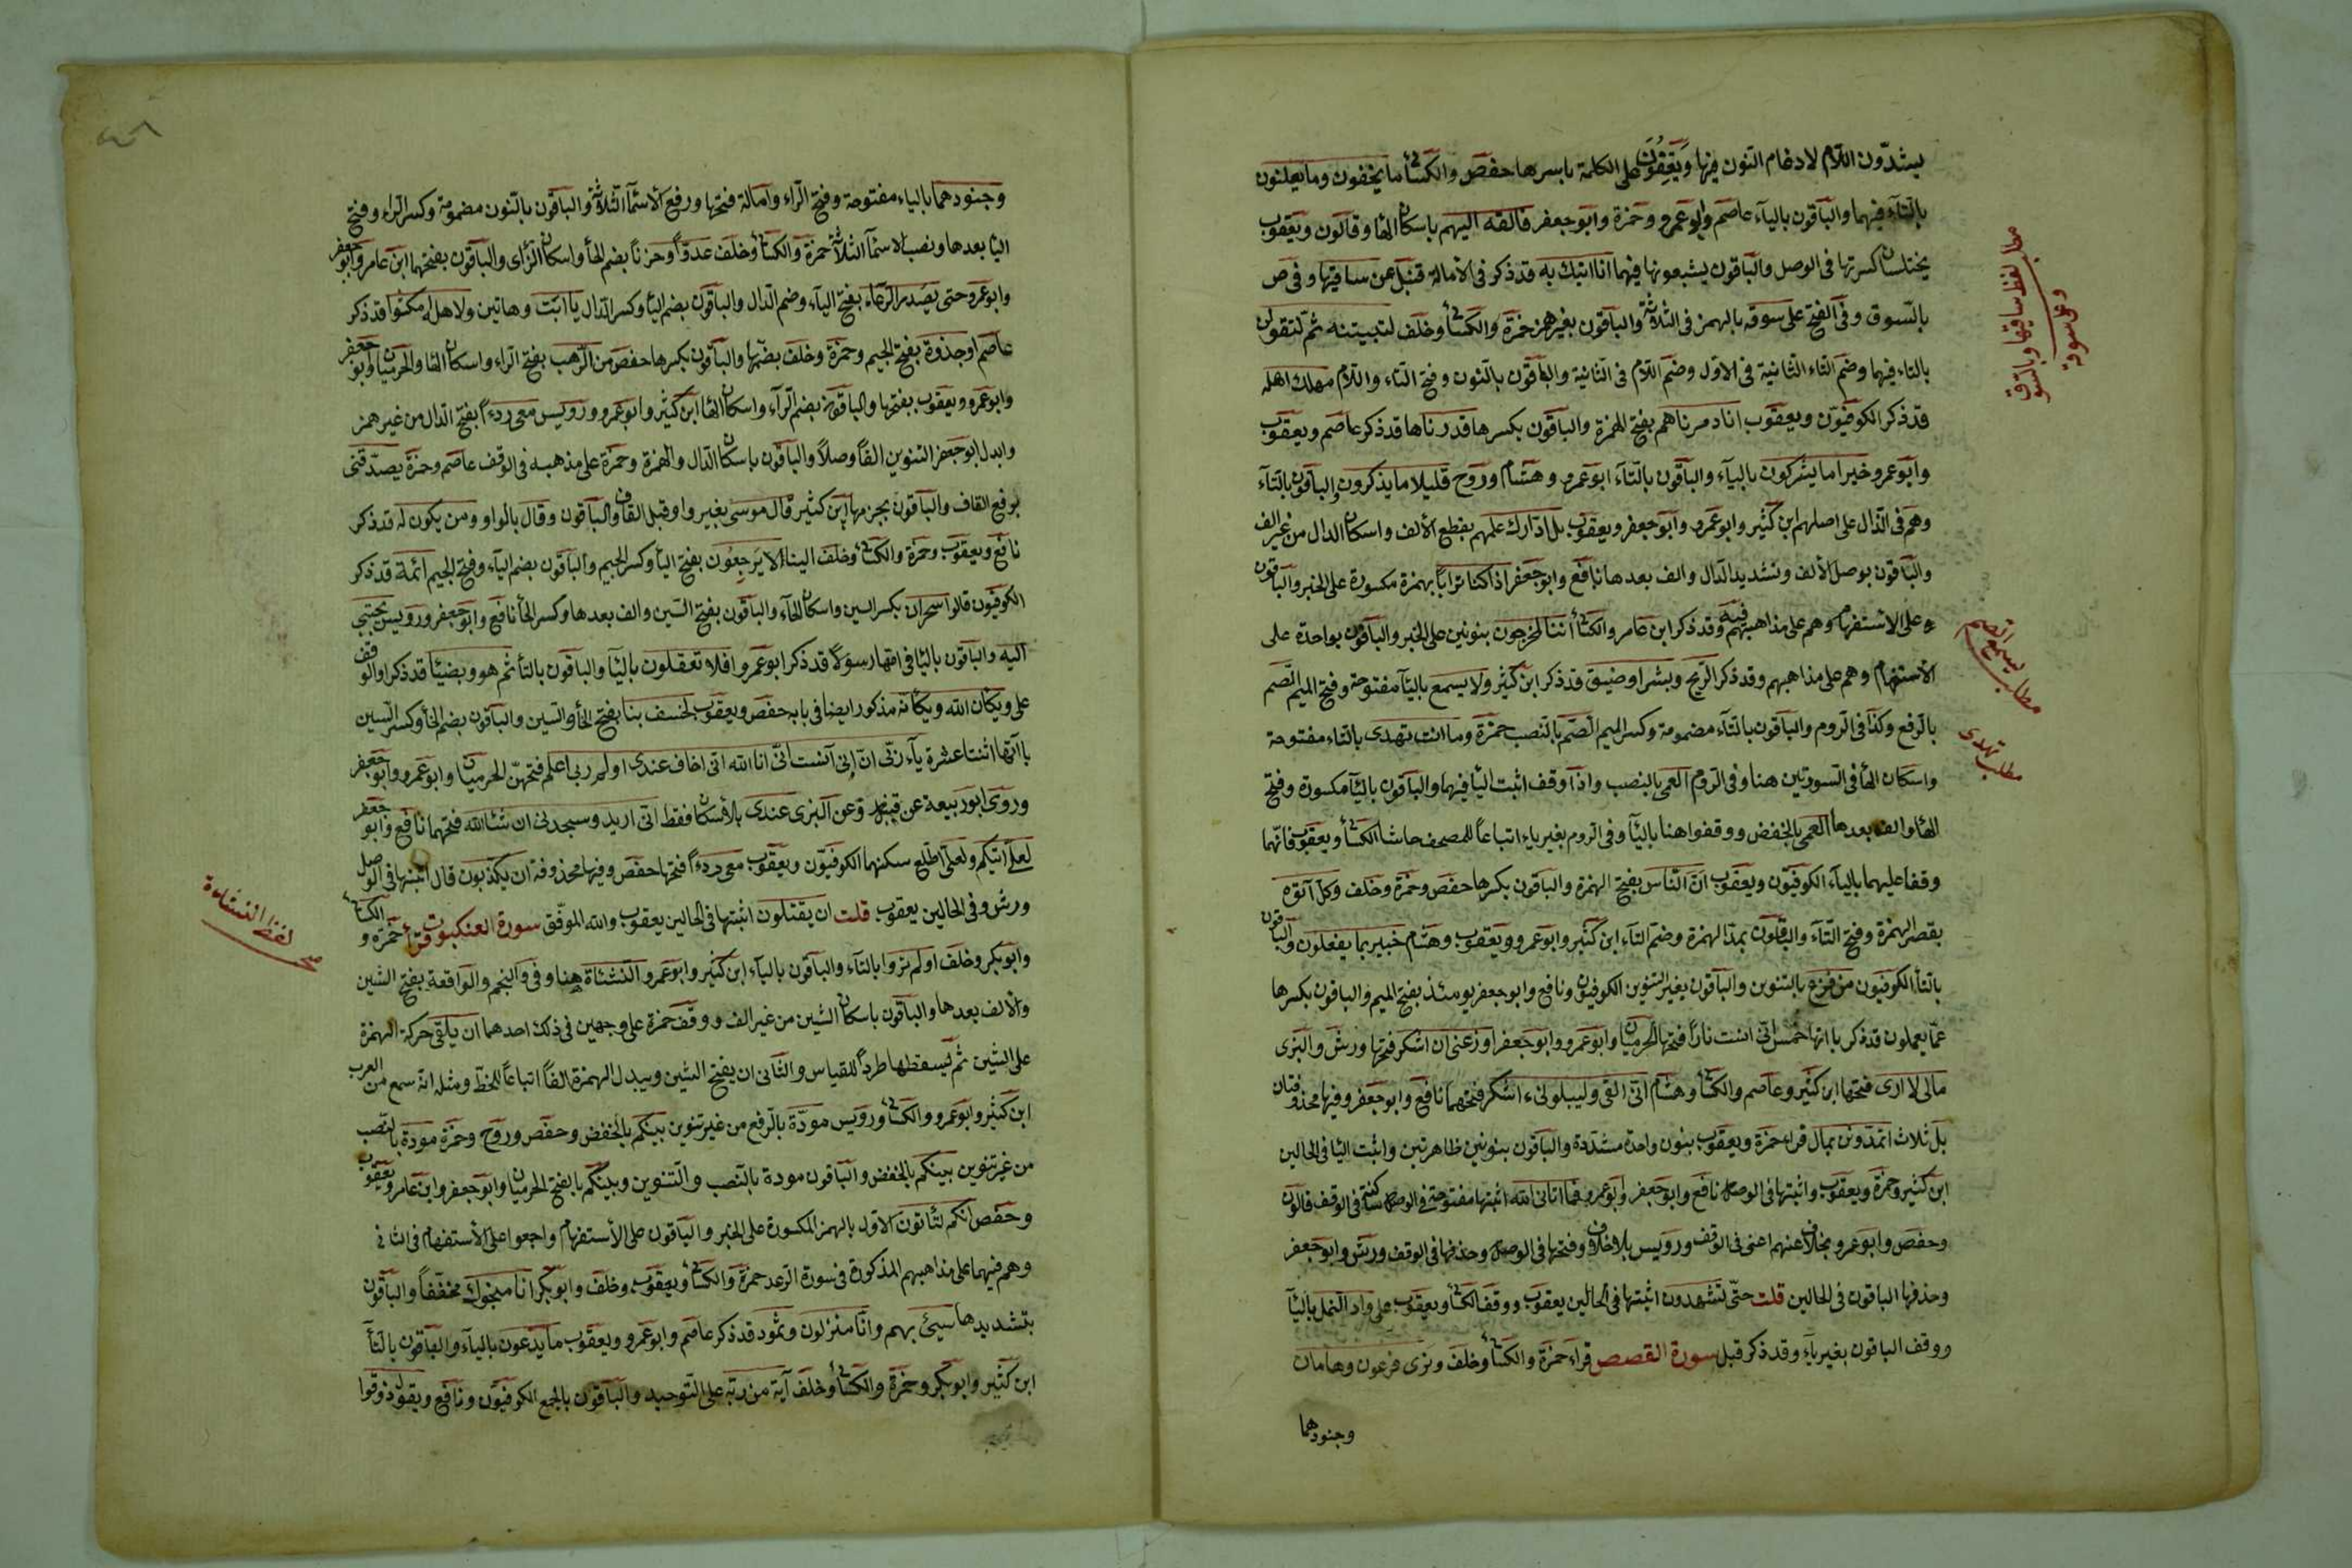 يشدّدون اللام لادغام النون فيها ويقفون على الكلمة باسرها حفص والكسائى ما يخفون وما يعلنون
بالتاء فيهما والباقون بالياء عاصم وابو عمرو وحمزة وابو جعفر فالقه اليهم باسكان الها وقالون ويعقوب
يختلسان كسرتها فى الوصل والباقون يشبعونها فيهما انا اتيك به قد ذكر فى الامالة قنبل عن ساقيها وفى ص
بالسوق وفى الفتح على سوقه بالهمز فى الثلاثة والباقون بغير همز حمزة والكسائى وخلف لتبيتنه ثم لتقولن
بالتاء فيهما وضم التاء الثانية فى الاول وضم اللام فى الثانية والباقون بالنون وفتح التاء واللام مهلك اهله
قد ذكر الكوفيون ويعقوب انا دمرناهم بفتح الهمزة والباقون بكسرها قدرناها قد ذكر عاصم ويعقوب
وابو عمرو خير اما يشركون بالياء والباقون بالتاء ابو عمرو وهشام وروح قليلا ما يذكرون والباقون بالتاء
وهم فى الذال على اصلهم ابن كثير وابو عمرو وابو جعفر ويعقوب بل ادارك علمهم بقطع الالف واسكان الدال من غير الف
والباقون بوصل الالف وتشديد الدال والف بعدها نافع وابو جعفر اذا كنا ترابا بهمزة مكسورة على الخبر والباقون
على الاستفهام وهم على مذاهبهم فيه وقد ذكر ابن عامر والكسائى اننا لمخرجون بنونين على الخبر والباقون بواحدة على
الاستفهام وهم على مذاهبهم وقد ذكر الريح وبشرا وضيق قد ذكر ابن كثير ولا يسمع بالياء مفتوحة وفتح الميم الصم
بالرفع وكذا فى الروم والباقون بالتاء مضمومة وكسر الميم الصم بالنصب حمزة وما انت تهدى بالتاء مفتوحة
واسكان الها فى السورتين هنا وفى الروم العمى بالنصب واذا وقف اثبت اليا فيهما والباقون بالياء مكسورة وفتح
الها والف بعدها العمى بالخفض ووقفوا هنا بالياء وفى الروم بغير ياء اتباعا للمصحف حاشا الكسائى ويعقوب فانهما
وقفا عليهما بالياء الكوفيون ويعقوب ان الناس بفتح الهمزة والباقون بكسرها حفص وحمزة وخلف وكل اتوه
بقصر الهمزة وفتح التاء والباقون بمد الهمزة وضم التاء ابن كثير وابو عمرو ويعقوب وهشام خبير بما يفعلون والباقون
بالتاء الكوفيون من فزع بالتنوين والباقون بغير التنوين الكوفيون ونافع وابو جعفر يومئذ بفتح الميم والباقون بكسرها
عما يعملون قد ذكر يااتها خمس انى انست نارا فتحها الحرميان وابو عمرو وابو جعفر اوزعنى ان اشكر فتحها ورش والبزى
مالى لا ارى فتحها ابن كثير وعاصم والكسائى وهشام انى القى وليبلونىء اشكر فتحهما نافع وابو جعفر وفيها محذوفتان
بل ثلاث اتمدونن بمال قراء حمزة ويعقوب بنون واحدة مشددة والباقون بنونين ظاهرتين واثبت اليا فى الحالين
ابن كثير وحمزة ويعقوب واثبتها فى الوصل نافع وابو جعفر وابو عمرو فما اتانى الله اثبتها مفتوحة فى الوصل ساكنة فى الوقف قالون
وحفص وابو عمرو بخلاف عنهم اعنى فى الوقف ورويس بلا خلاف وفتحها فى الوصل وحذفها فى الوقف ورش وابو جعفر
وحذفها الباقون فى الحالين قلت حتى تشهدون اثبتها فى الحالين يعقوب ووقف الكسائى ويعقوب على واد النمل بالياء
ووقف الباقون بغير ياء وقد ذكر قبل سورة القصص قراء حمزة والكسائى وخلف ويرى فرعون وهامان
وجنودهما
مطلب لفظ ساقيها وبالسوق
وعلى سوقه
مطلب يسمع الصم
مطلب تهدى
وجنودهما بالياء مفتوحة وفتح الراء وامالة فتحها ورفع الاسماء الثلاثة والباقون بالنون مضمومة وكسر الراء وفتح
اليا بعدها ونصب الاسماء الثلاثة حمزة والكسائى وخلف عدوا وحزنا بضم الحا واسكان الزاى والباقون بفتحهما ابن عامر وابو جعفر
وابو عمرو حتى يصدر الرعاء بفتح الياء وضم الدال والباقون بضم اليا وكسر الدال يا ابت وهاتين ولاهله امكثوا قد ذكر
عاصم او جذوة بفتح الجيم وحمزة وخلف بضمها والباقون بكسرها حفص من الرهب بفتح الراء واسكان الها والحرميان وابو جعفر
وابو عمرو ويعقوب بفتحها والباقون بضم الراء واسكان الها ابن كثير وابو عمرو ورويس معى ردءا بفتح الدال من غير همز
وابدل ابو جعفر التنوين الفا وصلا والباقون باسكان الدال والهمزة وحمزة على مذهبه فى الوقف عاصم وحمزة يصدقنى
برفع القاف والباقون بجزمها ابن كثير قال موسى بغير واو قبل القاف والباقون وقال بالواو ومن يكون له قد ذكر
نافع ويعقوب وحمزة والكسائى وخلف الينا لا يرجعون بفتح اليا وكسر الجيم والباقون بضم الياء وفتح الجيم ائمة قد ذكر
الكوفيون قالوا سحران بكسر السين واسكان الحاء والباقون بفتح السين والف بعدها وكسر الحا نافع وابو جعفر ورويس تجبى
اليه والباقون باليا فى امها رسولا قد ذكر ابو عمرو افلا تعقلون بالياء والباقون بالتا ثم هو وبضياء قد ذكرا والوقف
على ويكان الله ويكانه مذكور ايضا فى بابه حفص ويعقوب لخسف بنا بفتح الخا والسين والباقون بضم الخا وكسر السين
يااتها اثنتا عشرة ياء ربى ان انى آنست انى انا الله انى اخاف عندى اولم ربى اعلم فتحهن الحرميان وابو عمرو وابو جعفر
وروى ابو ربيعة عن قنبل وعن البزى عندى بالاسكان فقط انى اريد وستجدنى ان شاء الله فتحهما نافع وابو جعفر
لعلى اتيكم ولعلى اطلع سكنهما الكوفيون ويعقوب معى ردءا فتحها حفص وفيها محذوفة ان يكذبون قال اثبتها فى الوصل
ورش وفى الحالين يعقوب قلت ان يقتلون اثبتها فى الحالين يعقوب والله الموفق سورة العنكبوت قرأ حمزة والكسائى
وابو بكر وخلف اولم تروا بالتاء والباقون بالياء ابن كثير وابو عمرو النشئاة هنا وفى والنجم والواقعة بفتح الشين
والالف بعدها والباقون باسكان الشين من غير الف ووقف حمزة على وجهين فى ذلك احدهما ان يلقى حركة الهمزة
على الشين ثم يسقطها طردا للقياس والثانى ان يفتح الشين ويبدل الهمزة الفا اتباعا للخط ومثله انه سمع من العرب
ابن كثير وابو عمرو والكسائى ورويس مودة بالرفع من غير تنوين بينكم بالخفض وحفص وروح وحمزة مودة بالنصب
من غير تنوين بينكم بالخفض والباقون مودة بالنصب والتنوين وبينكم بالفتح الحرميان وابو جعفر وابن عامر ويعقوب
وحفص انكم لتاتون الاول بالهمز المكسورة على الخبر والباقون على الاستفهام واجمعوا على الاستفهام فى الثانى
وهم فيهما على مذاهبهم المذكورة فى سورة الرعد حمزة والكسائى ويعقوب وخلف وابو بكر انا منجوك مخففا والباقون
بتشديدها سيئ بهم وانا منزلون وثمود قد ذكر عاصم وابو عمرو ويعقوب ما يدعون بالياء والباقون بالتاء
ابن كثير وابو بكر وحمزة والكسائى وخلف آية من ربه على التوحيد والباقون بالجمع الكوفيون ونافع ويقول ذوقوا
لفظ النشاة